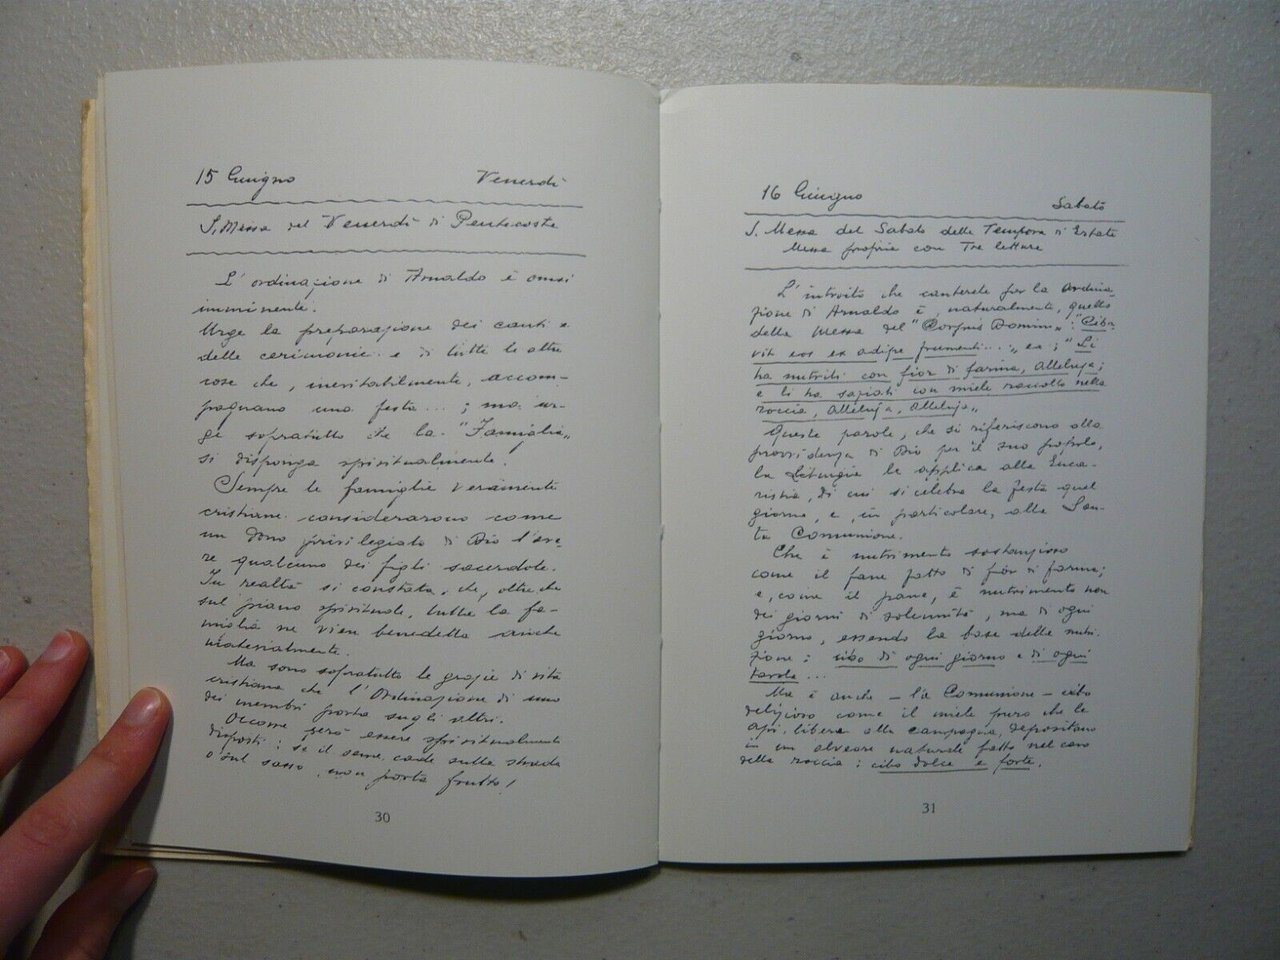 15 Giugno Venerdì
S. Messa del Venerdì di Pentecoste
L'ordinazione di Arnaldo è omai
imminente.
Urge la preparazione dei canti e
delle cerimonie e di tutte le altre
cose che, inevitabilmente, accom-
pagnano una festa...; ma ur-
ge sopratutto che la "Famiglia"
si disponga spiritualmente.
Sempre le famiglie veramente
cristiane considerarono come
un dono privilegiato di Dio l'ave-
re qualcuno dei figli sacerdote.
In realtà si constata, che, oltre che
sul piano spirituale, tutta la fa-
miglia ne vien benedetta anche
materialmente.
Ma sono sopratutto le grazie di vita
cristiana che l'Ordinazione di uno
dei membri porta sugli altri.
Occorre però essere spiritualmente
disposti: se il seme cade sulla strada
o sul sasso, non porta frutto!
30
16 Giugno Sabato
S. Messa del Sabato delle Tempora d'Estate
Messa propria con Tre letture
L'introito che canterete per la ordina-
zione di Arnaldo è, naturalmente, quello
della Messa del "Corpus Domini": "Ciba-
vit eos ex adipe frumenti...", ea; "Li
ha nutriti con fior di farina, Alleluja;
e li ha saziati con miele raccolto nella
roccia, Alleluja, Alleluja"
Queste parole, che si riferiscono alla
provvidenza di Dio per il suo popolo,
la Liturgia le applica alla Euca-
ristia, di cui si celebra la festa quel
giorno, e, in particolare, alla San-
ta Comunione.
Che è nutrimento sostanzioso
come il pane fatto di fior di farina;
e, come il pane, è nutrimento non
dei giorni di solennità, ma di ogni
giorno, essendo la base della nutri-
zione: cibo di ogni giorno e di ogni
tavola...
Ma è anche - la Comunione - cibo
delizioso come il miele puro che le
api, libere alla campagna, depositano
in un alveare naturale fatto nel cavo
della roccia: cibo dolce e forte.
31